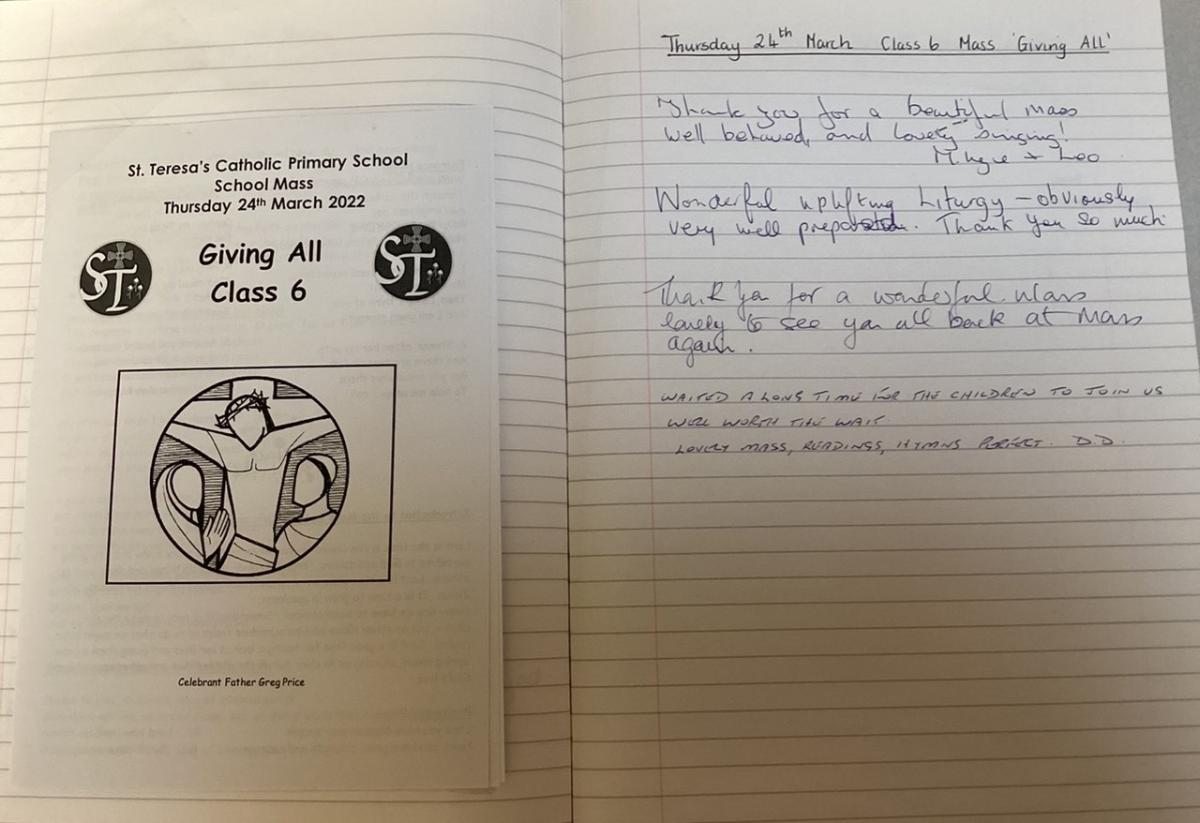 St. Teresa's Catholic Primary School
School Mass
Thursday 24th March 2022
Giving All
Class 6
Celebrant Father Greg Price
Thursday 24th March Class 6 Mass 'Giving All'
Thank you for a beautiful Mass
Well behaved, and lovely singing!
+ Leo
Wonderful uplifting Liturgy – obviously
very well. Thank you so much
Thank you for a wonderful Mass
lovely to see you all back at Mass
again.
WAITED A LONG TIME FOR THE CHILDREN TO JOIN US
WELL WORTH THE WAIT.
LOVELY MASS, READINGS, HYMNS PERFECT. D.D.